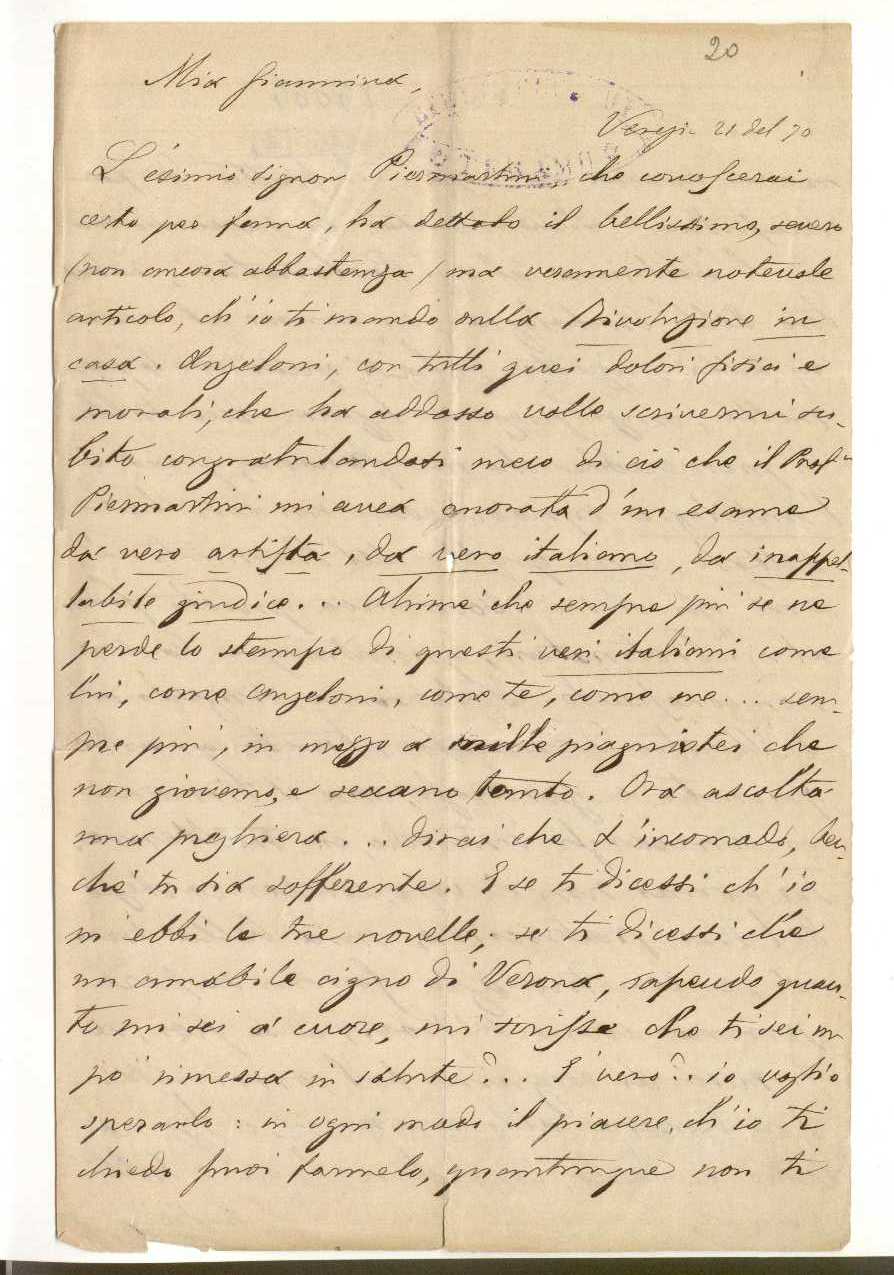 20
Mia Giannina,
21 del 70
L'esimio signor Piermartini, che conoscerai
certo per fama, ha dettato il bellissimo, severo
(non ancora abbastanza) ma veramente notevole
articolo, ch'io ti mando sulla Rivoluzione in
casa. Angeloni, con tutti quei dolori fisici e
morali, che ha addosso volle scrivermi su-
bito congratulandosi meco di ciò che il Prof.
Piermartini mi avea onorata d'un esame
da vero artista, da vero italiano, da inappel-
labile giudice... Ahimè che sempre più se ne
perde lo stampo di questi veri italiani come
lui, come Angeloni, come te, come me... sem-
pre più, in mezzo a mille piagnistei che
non giovano, e seccano tanto. Ora ascolta
una preghiera... dirai che t'incomodo, ben-
chè tu sia sofferente. E se ti dicessi ch'io
m'ebbi le tue novelle; se ti dicessi che
un amabile cigno di Verona, sapendo quan-
to mi sei a cuore, mi scrisse che ti sei un
po' rimessa in salute?.. E' vero?.. io voglio
sperarlo: in ogni modo il piacere, ch'io ti
chiedo puoi farmelo, quantunque non ti